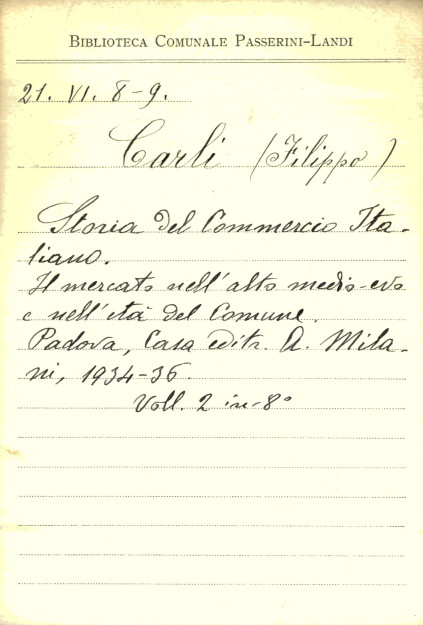 BIBLIOTECA COMUNALE PASSERINI-LANDI
21. VI. 8-9.
Carli (Filippo)
Storia del Commercio Ita-
liano.
Il mercato nell'alto medio-evo
e nell'età del Comune.
Padova, Casa editr. A. Mila-
ni, 1934-36.
Voll. 2 in-8°